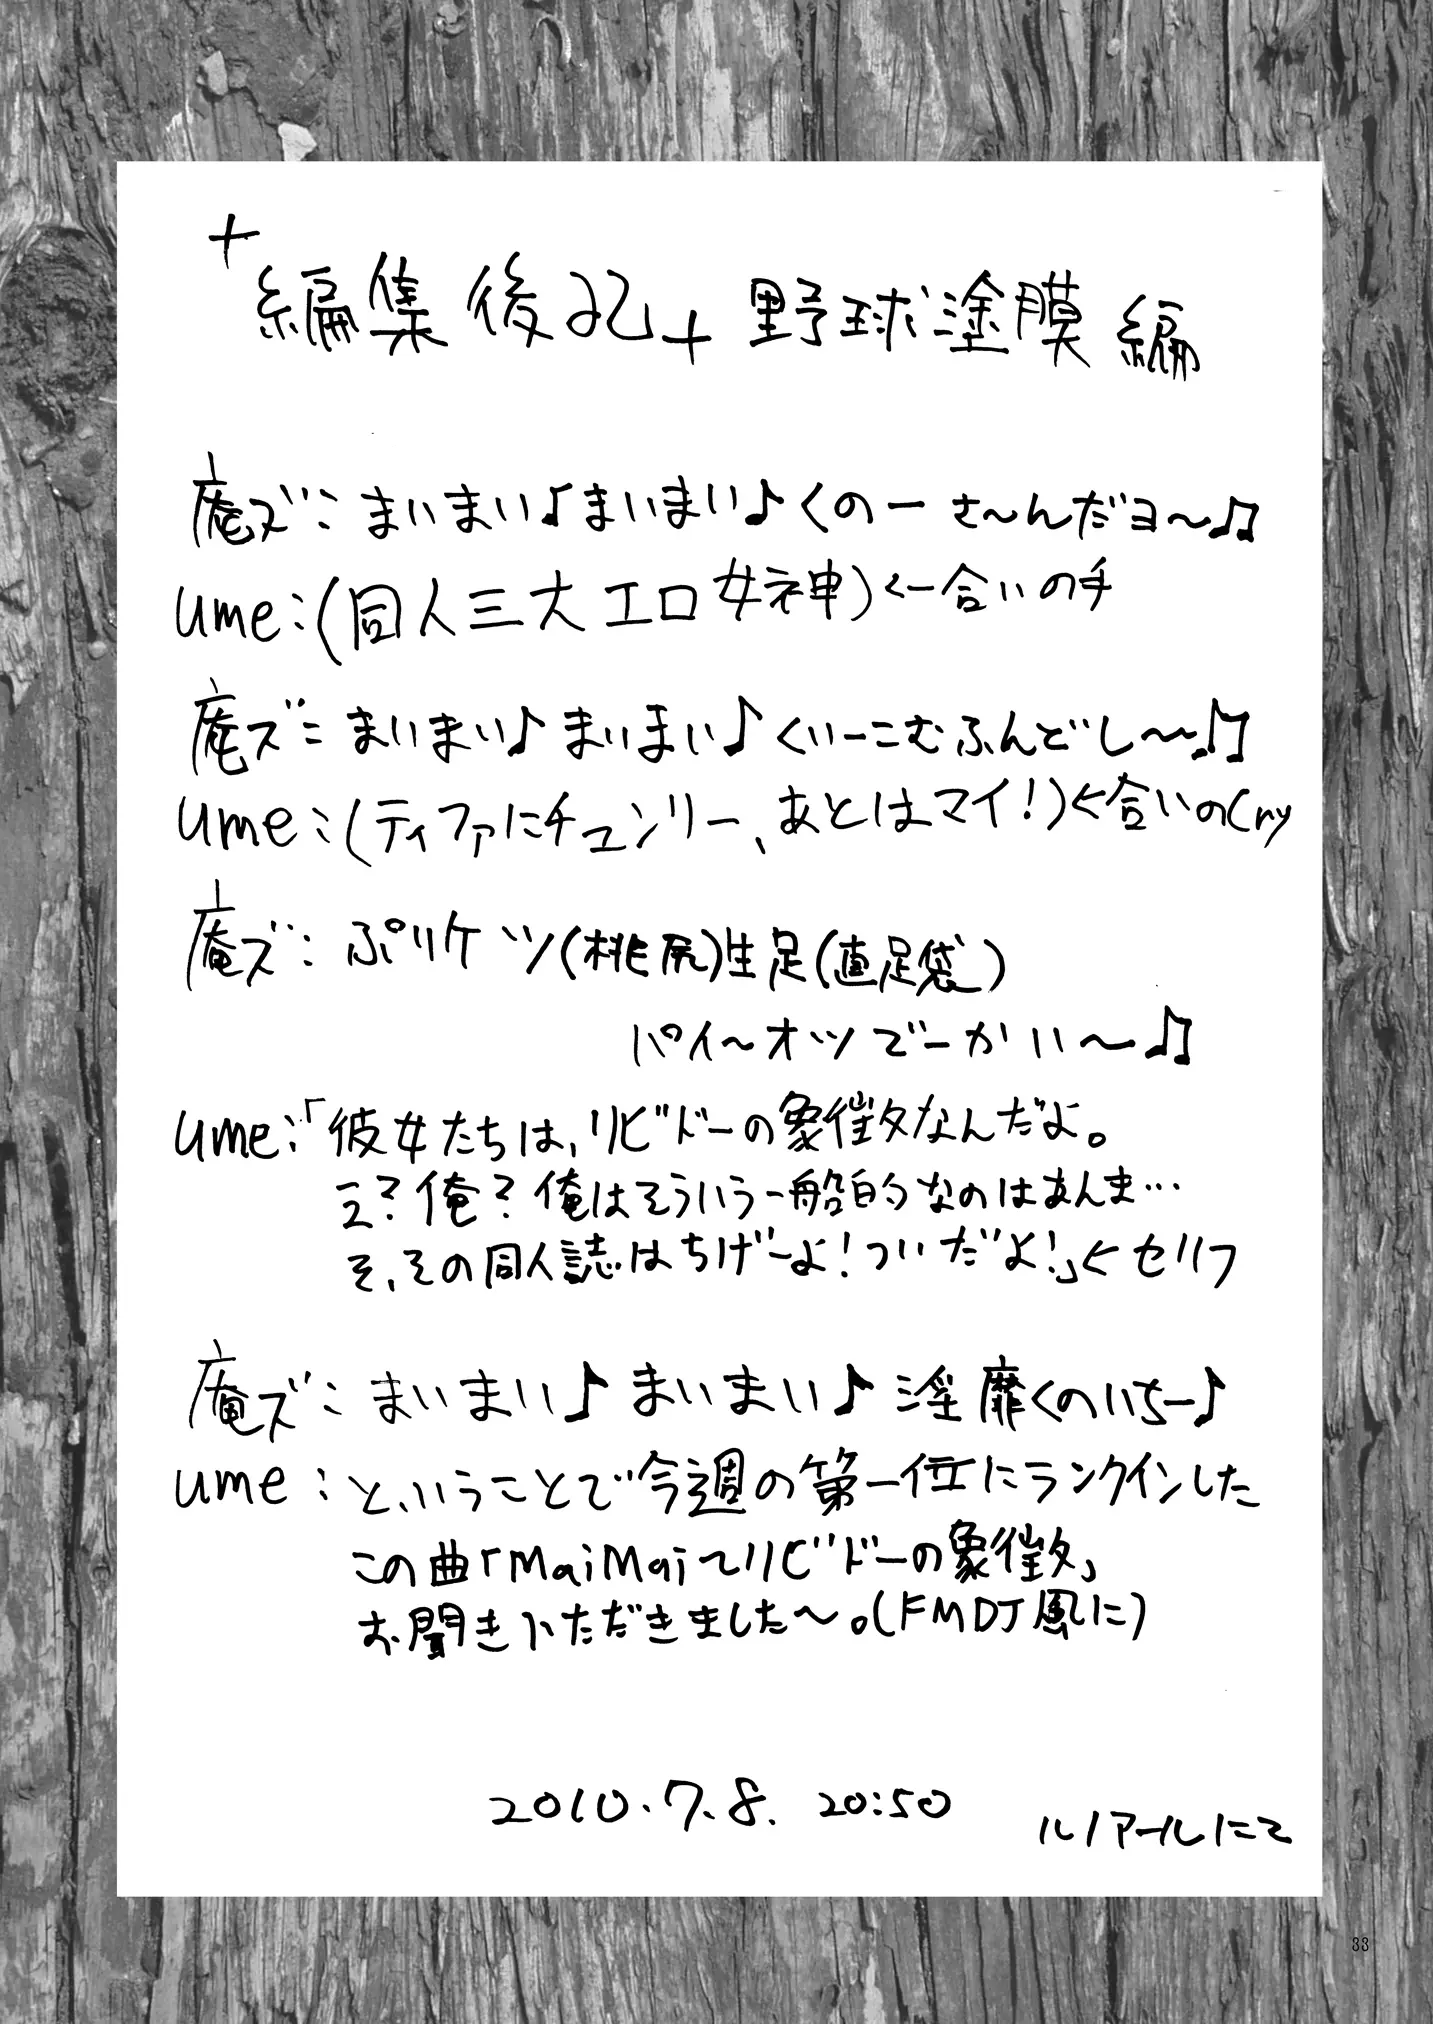 +編集後記+ 野球塗膜編
庵ズ:まいまい♪まいまい♪くのーさ〜んだヨ〜♫
ume:(同人三大エロ女神)←合いの手
庵ズ:まいまい♪まいまい♪くいーこむふんどし〜♫
ume:(ティファにチュンリー、あとはマイ!)←合いのCry
庵ズ:ぷりケツ(桃尻)生足(直足袋)
パイ〜オツでーかい〜♫
ume:「彼女たちは、リビドーの象徴なんだよ。
え?俺?俺はそういう一般的なのはあんま…
そ、その同人誌はちげーよ!ついだよ!」←セリフ
庵ズ:まいまい♪まいまい♪淫靡くのいちー♪
ume:と、いうことで今週の第一位にランクインした
この曲「MaiMai〜リビドーの象徴」
お聞きいただきました〜。(FMDJ風に)
2010.7.8. 20:50
ルノアールにて
33